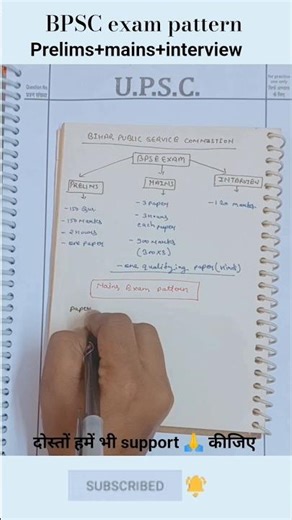 BPSC exam pattern
Prelims+mains+interview
U.P.S.C.
BIHAR PUBLIC SERVICE COMMISSION
BPSC EXAM
PRELIMS
MAINS
INTERVIEW
- 150 Que
- 150 Marks
- 2 Hours
- one paper
- 3 Paper
- 3 Hours
each paper
- 900 Marks
(300x3)
- one qualifying paper (Hindi)
- 120 marks
Mains Exam pattern
Paper
दोस्तों हमें भी support 🙏 कीजिए
SUBSCRIBED